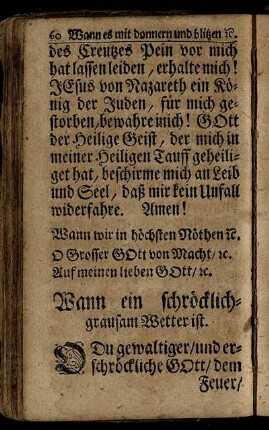 60 Wann es mit donnern und blitzen ꝛc.
des Creutzes Pein vor mich
hat lassen leiden / erhalte mich!
JEsus von Nazareth ein Kö-
nig der Juden, für mich ge-
storben, bewahre mich! GOtt
der Heilige Geist, der mich in
meiner Heiligen Tauff geheili-
get hat, beschirme mich an Leib
und Seel, daß mir kein Unfall
widerfahre. Amen!
Wann wir in höchsten Nöthen ꝛc.
O Grosser GOtt von Macht/ ꝛc.
Auf meinen lieben GOtt/ ꝛc.
Wann ein schröcklich-
grausam Wetter ist.
O Du gewaltiger/ und er-
schröckliche GOtt/ dem
Feuer/